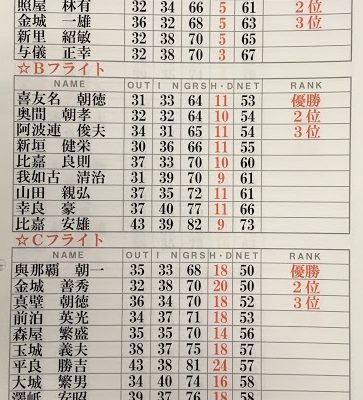 照屋 林有 32 34 66 5 61 2位
金城 一雄 36 32 68 5 63 3位
新里 紹敏 32 38 70 5 65
与儀 正幸 32 38 70 3 67
☆Bフライト
NAME OUT IN GRS H・D NET RANK
喜友名 朝徳 31 33 64 11 53 優勝
奥間 朝孝 32 32 64 10 54 2位
阿波連 俊夫 34 31 65 11 54 3位
新垣 健栄 30 36 66 11 55
比嘉 良則 37 33 70 10 60
我如古 清治 31 39 70 9 61
山田 親弘 37 35 72 11 61
幸良 豪 37 40 77 11 66
比嘉 安雄 43 39 82 9 73
☆Cフライト
NAME OUT IN GRS H・D NET RANK
與那覇 朝一 35 33 68 18 50 優勝
金城 善秀 32 38 70 20 50 2位
真壁 朝徳 36 34 70 18 52 3位
前泊 英光 34 37 71 18 53
森屋 繁盛 35 35 70 14 56
玉城 義夫 38 37 75 18 57
平良 勝吉 43 38 81 24 57
大城 繁男 34 40 74 16 58
澤岻 安昭 39 37 76 18 58